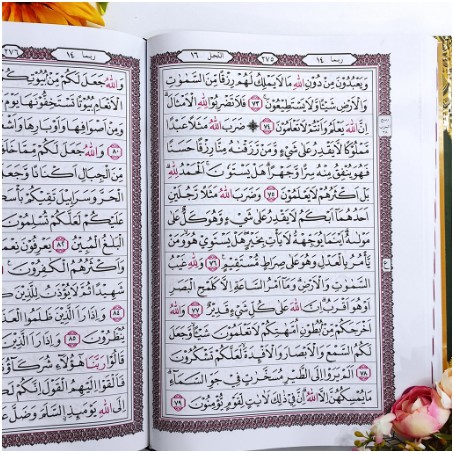 ربما ١٤
٢٧٥
النحل ١٦
وَيَعْبُدُونَ مِن دُونِ اللهِ مَا لَا يَمْلِكُ لَهُمْ رِزْقًا مِّنَ السَّمٰوٰتِ
وَالْاَرْضِ شَيْئًا وَّلَا يَسْتَطِيْعُوْنَ ﴿٧٣﴾ فَلَا تَضْرِبُوْا لِلّٰهِ الْاَمْثَالَ
اِنَّ اللهَ يَعْلَمُ وَاَنْتُمْ لَا تَعْلَمُوْنَ ﴿٧٤﴾ ضَرَبَ اللهُ مَثَلًا عَبْدًا
مَّمْلُوْكًا لَّا يَقْدِرُ عَلٰى شَيْءٍ وَّمَنْ رَّزَقْنٰهُ مِنَّا رِزْقًا حَسَنًا
فَهُوَ يُنْفِقُ مِنْهُ سِرًّا وَّجَهْرًا هَلْ يَسْتَوٗنَ اَلْحَمْدُ لِلّٰهِ
بَلْ اَكْثَرُهُمْ لَا يَعْلَمُوْنَ ﴿٧٥﴾ وَضَرَبَ اللهُ مَثَلًا رَّجُلَيْنِ
اَحَدُهُمَا اَبْكَمُ لَا يَقْدِرُ عَلٰى شَيْءٍ وَّهُوَ كَلٌّ عَلٰى
مَوْلٰىهُ اَيْنَمَا يُوَجِّهْهُ لَا يَاْتِ بِخَيْرٍ هَلْ يَسْتَوِيْ هُوَ وَمَنْ
يَّاْمُرُ بِالْعَدْلِ وَهُوَ عَلٰى صِرَاطٍ مُّسْتَقِيْمٍ ﴿٧٦﴾ وَلِلّٰهِ غَيْبُ
السَّمٰوٰتِ وَالْاَرْضِ وَمَا اَمْرُ السَّاعَةِ اِلَّا كَلَمْحِ الْبَصَرِ
اَوْ هُوَ اَقْرَبُ اِنَّ اللهَ عَلٰى كُلِّ شَيْءٍ قَدِيْرٌ ﴿٧٧﴾ وَاللهُ
اَخْرَجَكُمْ مِّنْ بُطُوْنِ اُمَّهٰتِكُمْ لَا تَعْلَمُوْنَ شَيْئًا وَّجَعَلَ
لَكُمُ السَّمْعَ وَالْاَبْصَارَ وَالْاَفْـِٕدَةَ لَعَلَّكُمْ تَشْكُرُوْنَ
﴿٧٨﴾ اَلَمْ يَرَوْا اِلَى الطَّيْرِ مُسَخَّرٰتٍ فِيْ جَوِّ السَّمَآءِ
مَا يُمْسِكُهُنَّ اِلَّا اللهُ اِنَّ فِيْ ذٰلِكَ لَاٰيٰتٍ لِّقَوْمٍ يُّؤْمِنُوْنَ ﴿٧٩﴾
ربما ١٤
٢٧٦
وَاللهُ جَعَلَ لَكُمْ مِّنْ بُيُوْتِكُمْ
الْاَنْعَامِ بُيُوْتًا تَسْتَخِفُّوْنَهَا يَوْمَ
وَمِنْ اَصْوَافِهَا وَاَوْبَارِهَا
﴿٨٠﴾ وَاللهُ جَعَلَ لَكُمْ مِّمَّا خَلَقَ
مِّنَ الْجِبَالِ اَكْنَانًا وَّجَعَلَ
الْحَرَّ وَسَرَابِيْلَ تَقِيْكُمْ
عَلَيْكُمْ لَعَلَّكُمْ تُسْلِمُوْنَ
الْبَلٰغُ الْمُبِيْنُ ﴿٨٢﴾ يَعْرِفُوْنَ
وَاَكْثَرُهُمُ الْكٰفِرُوْنَ
شَهِيْدًا ثُمَّ لَا يُؤْذَنُ لِلَّذِيْنَ
﴿٨٤﴾ وَاِذَا رَاَ الَّذِيْنَ ظَلَمُوا
يُنْظَرُوْنَ ﴿٨٥﴾ وَاِذَا رَاَ الَّذِيْنَ
قَالُوْا رَبَّنَا هٰٓؤُلَآءِ
فَاَلْقَوْا اِلَيْهِمُ الْقَوْلَ اِنَّكُمْ
اِلَى اللهِ يَوْمَئِذِ السَّلَمَ وَضَلَّ